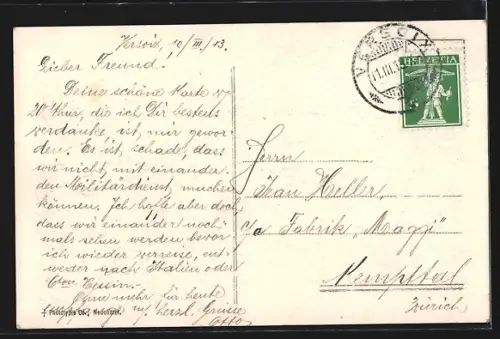 Versoix, 10/III/13.
Lieber Freund!
Deine schöne Karte v.
20 Uhr, die ich Dir bestens
verdanke ist mir gewor
den. Es ist schade, dass
wir nicht mit einander
den Militärdienst machen
können. Ich hoffe aber doch,
dass wir einander noch
mals sehen werden bevor
ich wieder verreise, ent
weder nach Italien oder
Ctn Tessin.
Ohne mehr für heute
herzl. Grüsse
Otto
Phototypie Co., Neuchâtel.
VERSOIX
11.III.13
HELVETIA
5
Herrn
Jean Heller,
c/o Fabrik „Maggi"
Kemptthal
Zürich